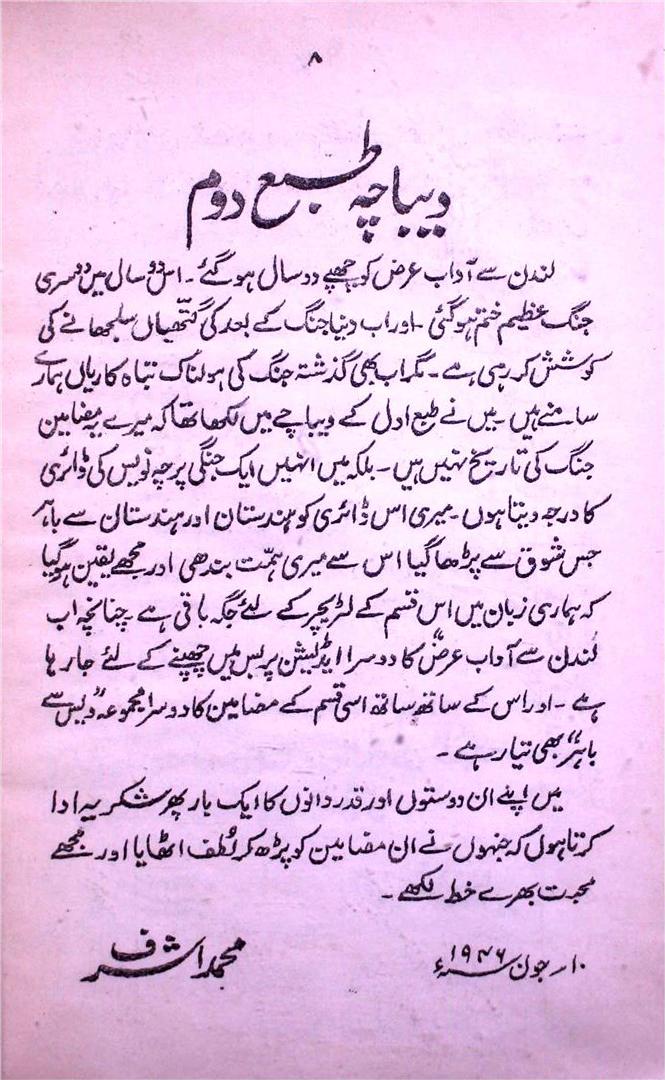 ۸
دیباچہ طبع دوم
لندن سے آداب عرض کو چھپے دو سال ہو گئے ۔ اس دو سال میں دوسری
جنگ عظیم ختم ہو گئی ۔ اور اب دنیا جنگ کے بعد کی گتھیاں سلجھانے کی
کوشش کر رہی ہے ۔ مگر اب بھی گذشتہ جنگ کی ہولناک تباہ کاریاں ہمارے
سامنے ہیں ۔ میں نے طبع اول کے دیباچے میں لکھا تھا کہ میرے یہ مضامین
جنگ کی تاریخ نہیں ہیں ۔ بلکہ میں انہیں ایک جنگی پرچہ نویس کی ڈائری
کا درجہ دیتا ہوں ۔ میری اس ڈائری کو ہندستان اور ہندستان سے باہر
جس شوق سے پڑھا گیا اس سے میری ہمّت بندھی اور مجھے یقین ہو گیا
کہ ہماری زبان میں اس قسم کے لٹریچر کے لئے جگہ باقی ہے ۔ چنانچہ اب
لندن سے آداب عرض“ کا دوسرا ایڈیشن پریس میں چھپنے کے لئے جا رہا
ہے ۔ اور اس کے ساتھ ساتھ اسی قسم کے مضامین کا دوسرا مجموعہ ”دیس سے
باہر“ بھی تیار ہے ۔
میں اپنے ان دوستوں اور قدر دانوں کا ایک بار پھر شکریہ ادا
کرتا ہوں کہ جنہوں نے ان مضامین کو پڑھ کر لُطف اٹھایا اور مجھے
محبت بھرے خط لکھے ۔
۱۰ر جون ۱۹۴۶ء
محمد اشرف